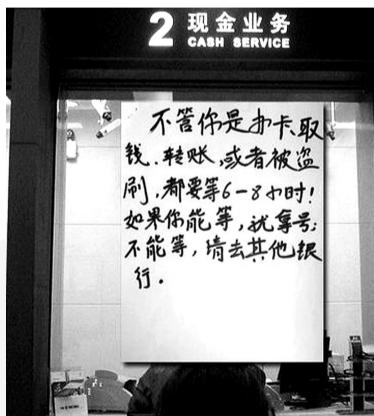 2 现金业务
CASH SERVICE
不管你是办卡取
钱、转账,或者被盗
刷,都要等6-8小时!
如果你能等,就拿号;
不能等,请去其他银
行.